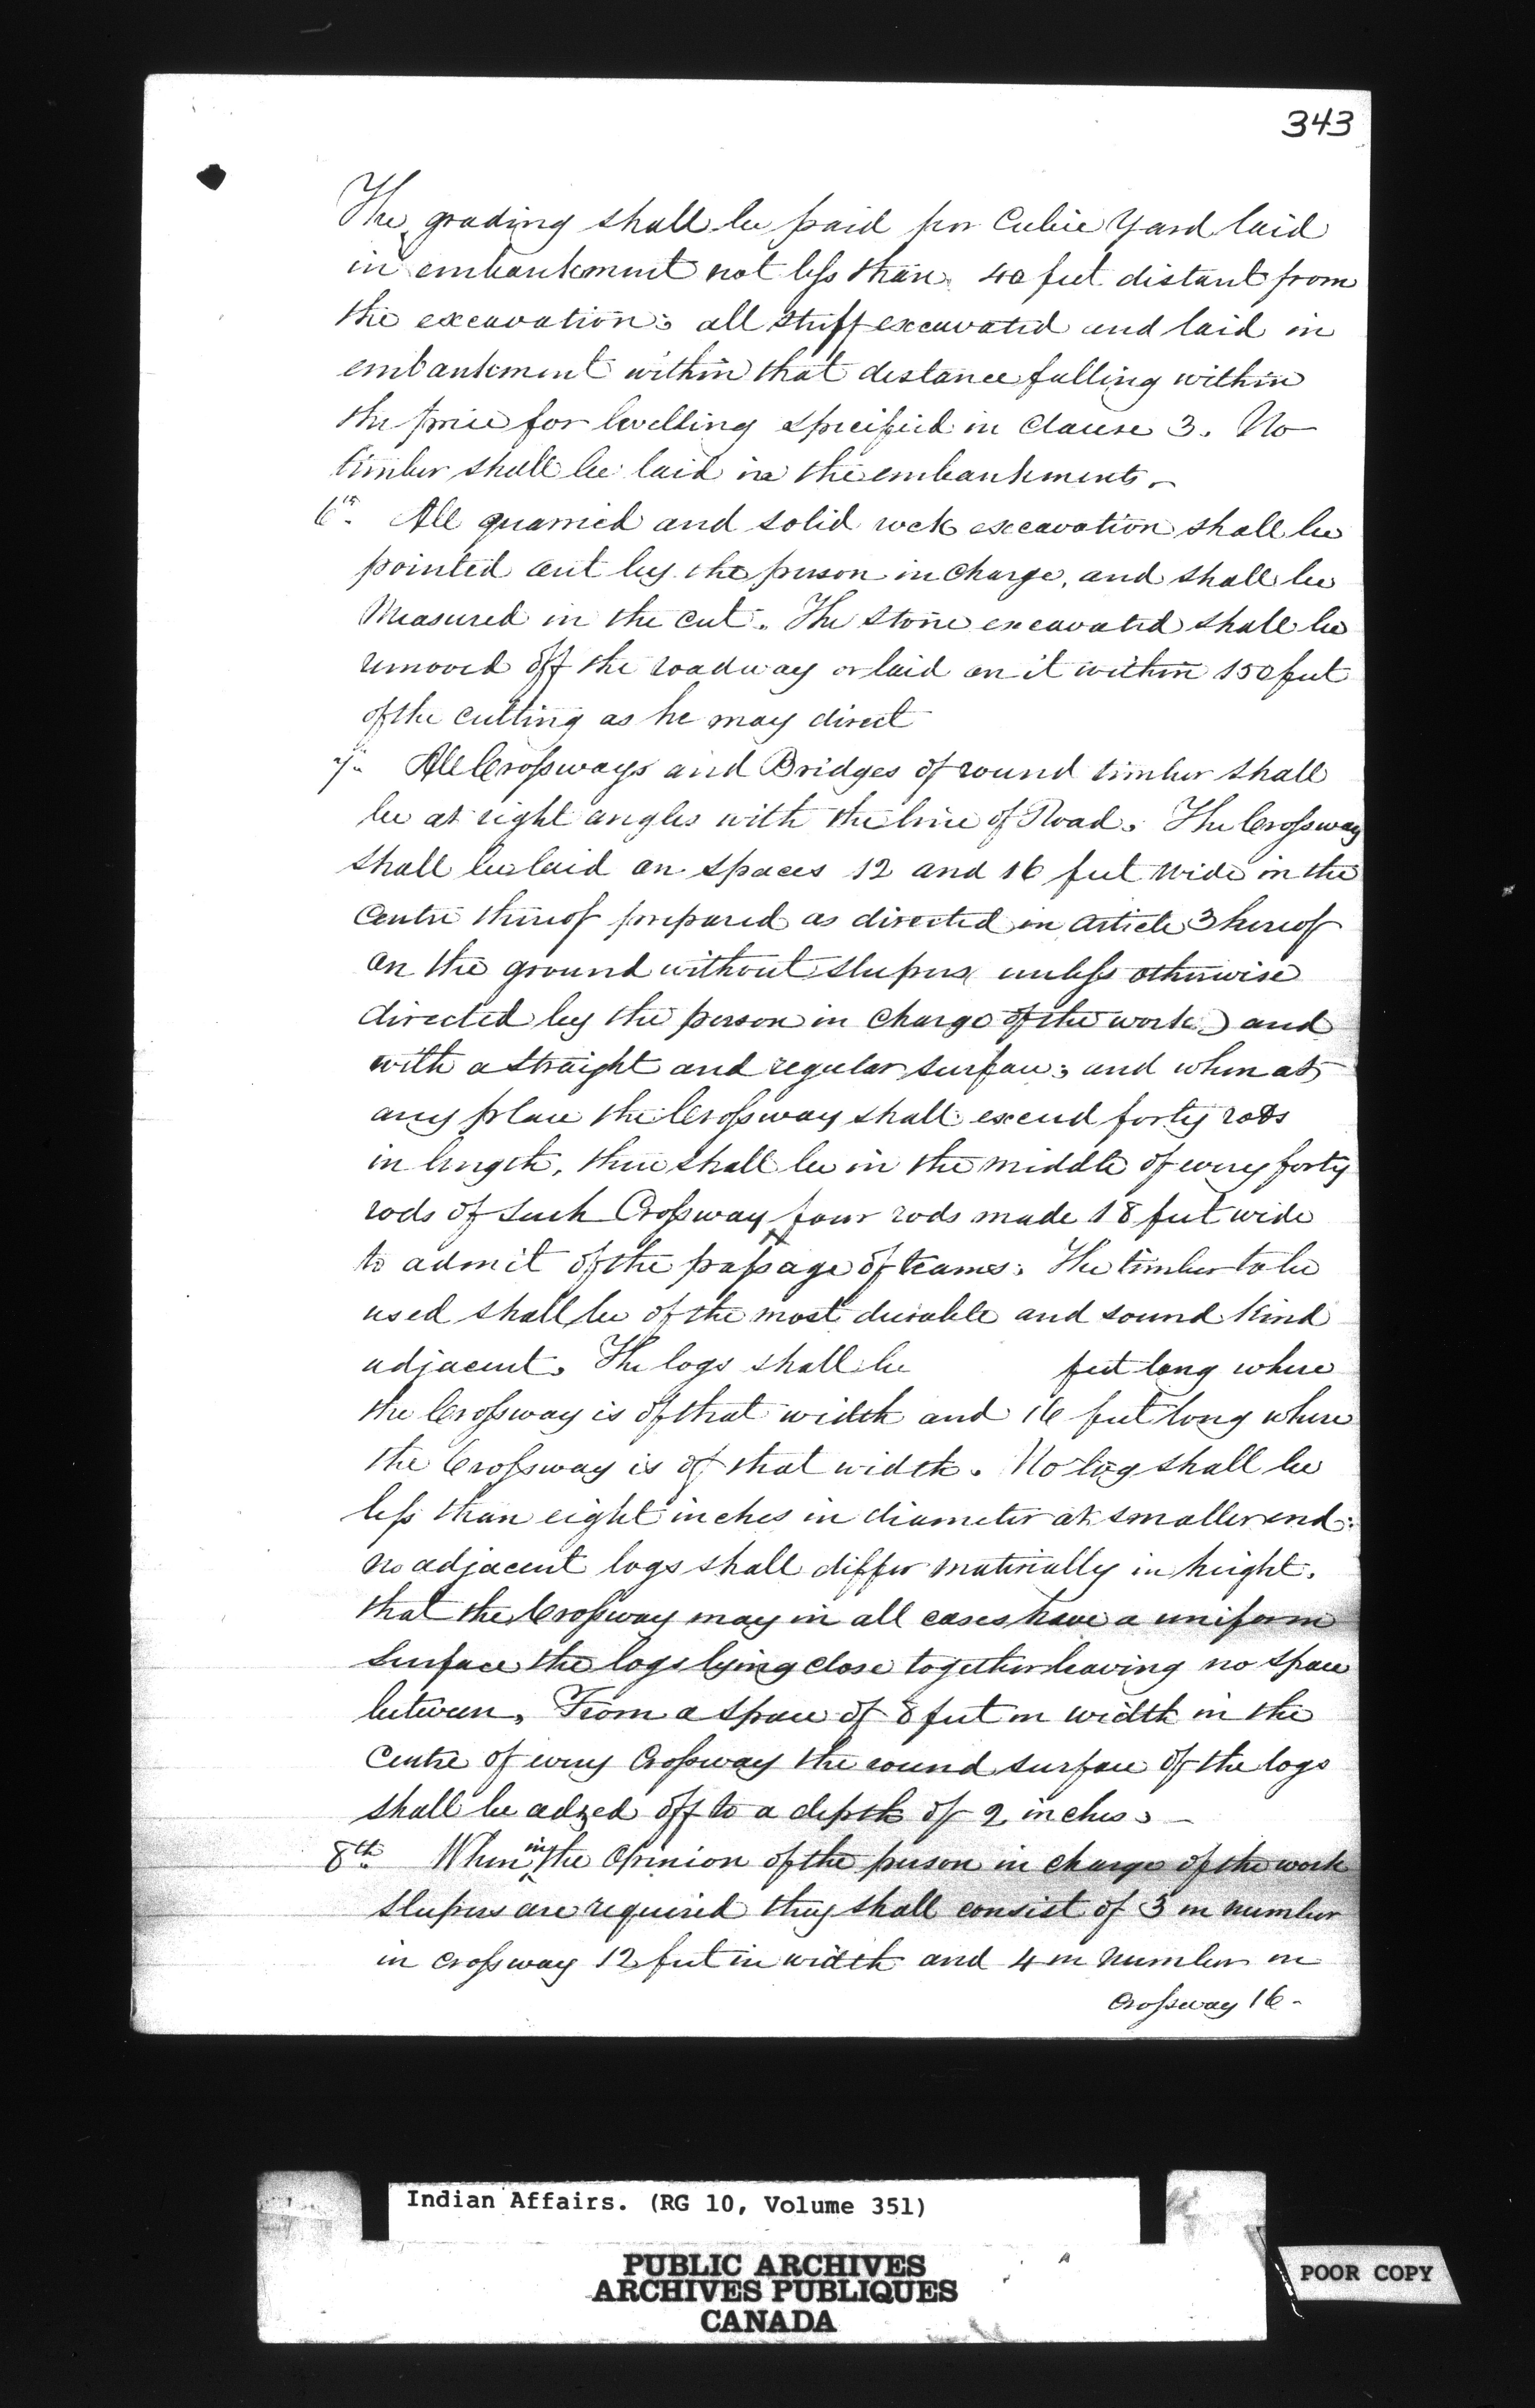 343
The grading shall be paid per Cubic Yard laid
in embankment not less than 40 feet distant from
the excavation; all stuff excavated and laid in
embankment within that distance falling within
the price for levelling specified in Clause 3. No
timber shall be laid in the embankments.
6th. All quarried and solid rock excavation shall be
pointed out by the person in charge, and shall be
Measured in the cut. The stone excavated shall be
removed off the roadway or laid on it within 150 feet
of the cutting as he may direct
7th. All Crossways and Bridges of round timber shall
be at right angles with the line of Road. The Crossway
shall be laid on spaces 12 and 16 feet wide in the
Centre thereof prepared as directed in article 3 hereof
on the ground without sleepers unless otherwise
directed by the person in charge of the work) and
with a straight and regular surface; and when at
any place the Crossway shall exceed forty rods
in length, there shall be in the middle of every forty
rods of such Crossway four rods made 18 feet wide
to admit of the passage of teams. The timber to be
used shall be of the most durable and sound kind
adjacent. The logs shall be feet long where
the Crossway is of that width and 16 feet long where
the Crossway is of that width. No log shall be
less than eight inches in diameter at smaller end:
no adjacent logs shall differ materially in height.
that the Crossway may in all cases have a uniform
surface the logs lying close together leaving no space
between. From a space of 8 feet in width in the
Centre of every Crossway the round surface of the logs
shall be adzed off to a depth of 2 inches.
8th. When in the opinion of the person in charge of the work
sleepers are required they shall consist of 3 in number
in crossway 12 feet in width and 4 in number in
Crossway 16-
Indian Affairs. (RG 10, Volume 351)
PUBLIC ARCHIVES
ARCHIVES PUBLIQUES
CANADA
POOR COPY